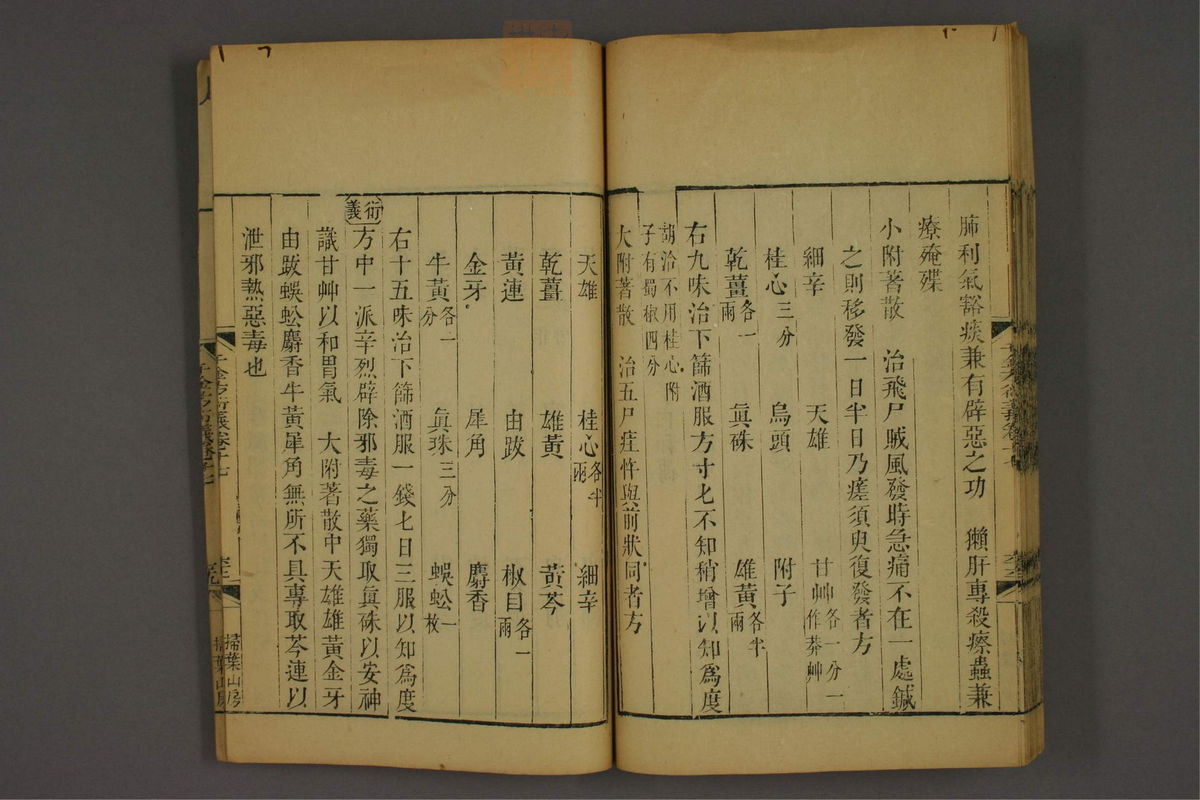 肺利氣豁痰兼有辟惡之功　獺肝專殺瘵蟲兼
療殗殜
小附著散　治飛尸賊風發時急痛不在一處鍼
之則移發一日半日乃瘥須臾復發者方
細辛　天雄　甘艸各一分一作莽艸
桂心三分　烏頭　附子
乾薑各一兩　眞硃　雄黃各半兩
右九味治下篩酒服方寸匕不知稍增以知爲度
胡洽不用桂心附
子有蜀椒四分
大附著散　治五尸疰忤與前狀同者方
天雄　桂心各半兩　細辛
乾薑　雄黃　黃芩
黃連　由跋　椒目各一兩
金牙　犀角　麝香
牛黃各一分　眞珠三分　蜈蚣一枚
右十五味治下篩酒服一錢匕日三服以知爲度
衍義　方中一派辛烈辟除邪毒之藥獨取眞硃以安神
識甘艸以和胃氣　大附著散中天雄雄黃金牙
由跋蜈蚣麝香牛黃犀角無所不具專取芩連以
泄邪熱惡毒也
千金方衍義卷十七
掃葉山房